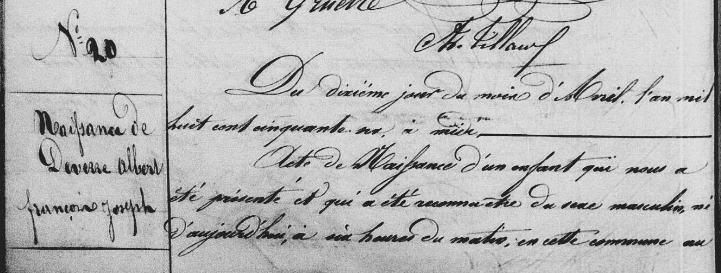 N° 20
Naissance de
Deverse Albert
françois Joseph
Du dixième jour du mois d'Avril, l'an mil
huit cent cinquante six, à midi
Acte de Naissance d'un enfant qui nous a
été présenté et qui a été reconnu être du sexe masculin, né
d'aujourd'hui, à six heures du matin, en cette commune au